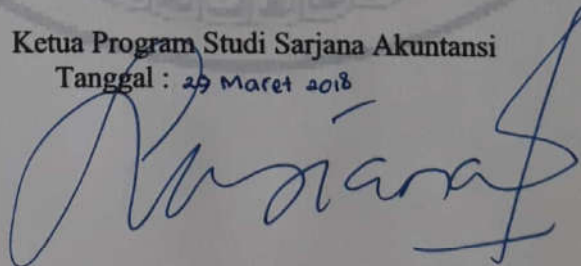 Ketua Program Studi Sarjana Akuntansi
Tanggal : 29 Maret 2018